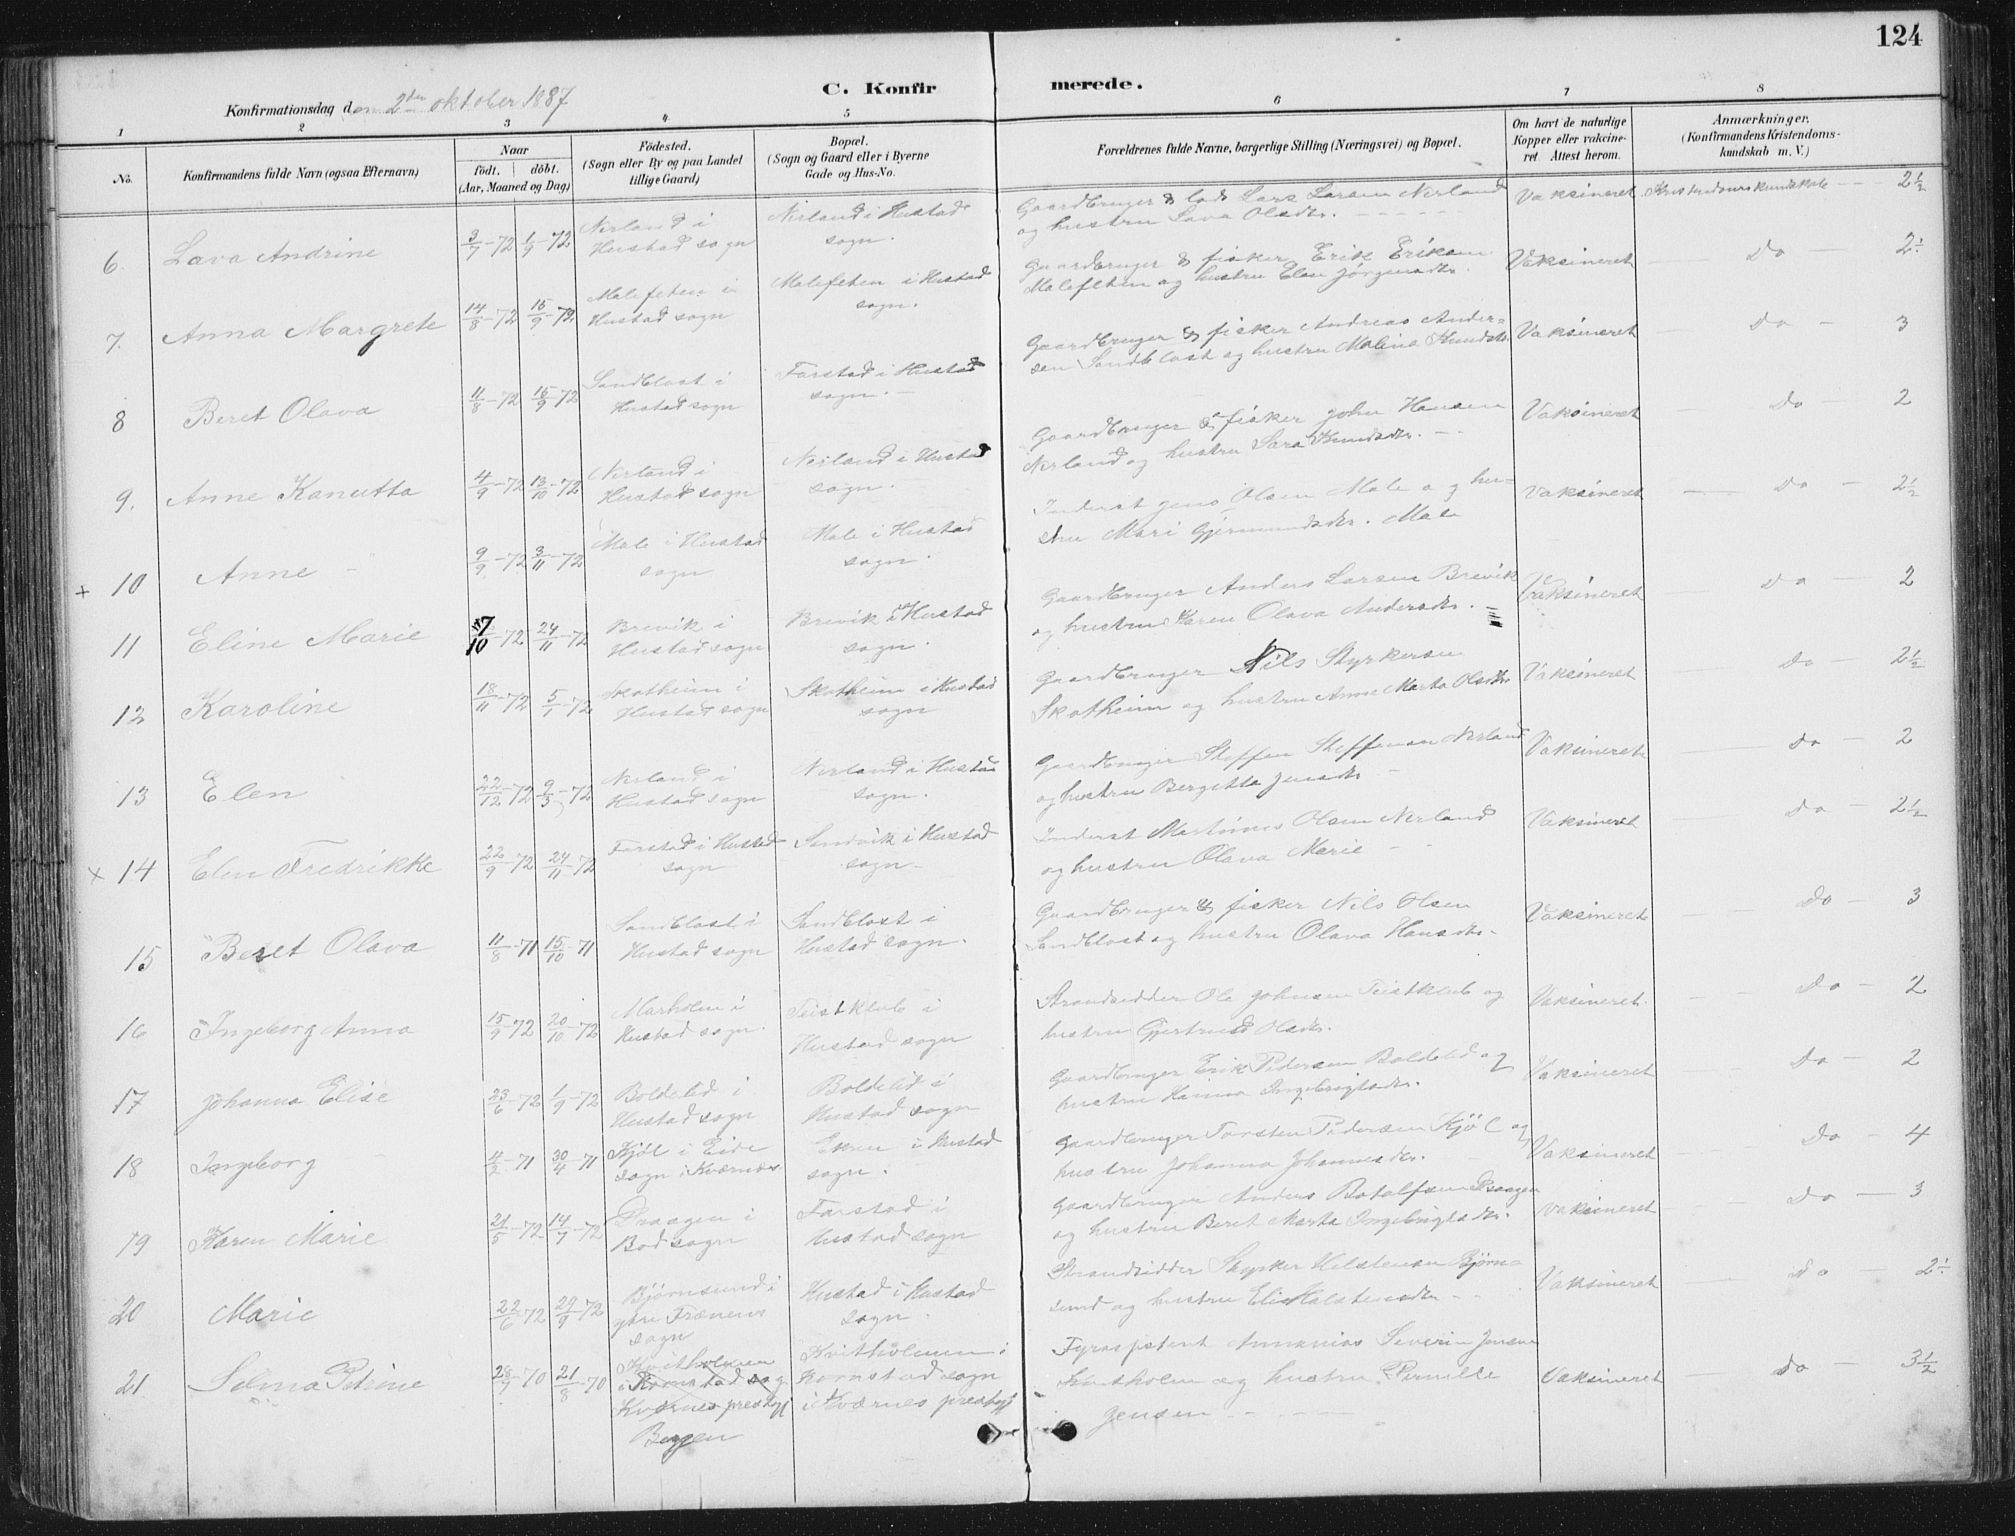 124
C. Konfirmerede.
Konfirmationsdag den 2den oktober 1887
1 2 3 4 5 6 7 8
No. Konfirmandens fulde Navn (ogsaa Efternavn) Naar født. døbt. (Aar, Maaned og Dag) Fødested. (Sogn eller By og paa Landet tillige Gaard) Bopæl. (Sogn og Gaard eller i Byerne Gade og Hus-No. Forældrenes fulde Navne, borgerlige Stilling (Næringsvei) og Bopæl. Om havt de naturlige Kopper eller vakcineret. Attest herom. Anmærkninger. (Konfirmandens Kristendomskundskab m. V.)
6. Lava Andrine 3/7-72 1/9-72 Nerland i Hustad sogn Nerland i Hustad sogn. Gaardbruger & lods Lars Larsen Nerland og hustru Lava Olsdtr. Vaksineret Kristendomskundskab 2½
7. Anna Margrete 14/8-72 15/9-72 Malefeten i Hustad sogn Malefeten i Hustad sogn. Gaardbruger & fisker Erik Eriksen Malefeten og hustru Elen Jørgensdtr. Vaksineret Do 2½
8 Beret Olava 11/8-72 15/9-72 Sandblost i Hustad sogn Farstad i Hustad sogn. Gaardbruger & fisker Andreas Andersen Sandblost og hustru Malina Knudsdtr. Vaksineret Do 3
9. Anne Kanutta 4/9-72 13/10-72 Nerland i Hustad sogn Nerland i Hustad sogn. Gaardbruger & fisker John Hansen Nerland og hustru Sara Knudsdtr. Vaksineret Do 2
+ 10 Anne 9/9-72 3/11-72 Male i Hustad sogn Male i Hustad sogn. Inderst Jens Olsen Male og hustru Mari Gjermundsdtr. Male Vaksineret Do 2½
11 Eline Marie 7/10-72 24/11-72 Brevik i Hustad sogn Brevik i Hustad sogn. Gaardbruger Anders Larsen Brevik og hustru Karen Olava Andersdtr. Vaksineret Do 2
12 Karoline 18/11-72 5/1-72 Skotheim i Hustad sogn Skotheim i Hustad sogn Gaardbruger Nils Styrkersen Skotheim og hustru Anne Marta Olsdtr. Vaksineret Do 2½
13 Elen 22/12-72 9/3-72 Nerland i Hustad sogn Nerland i Hustad sogn. Gaardbruger Steffen Steffensen Nerland og hustru Bergitta Jensdtr Vaksineret Do 2
x 14 Elen Fredrikke 22/9-72 24/11-72 Farstad i Hustad sogn Sandvik i Hustad sogn. Inderst Martinus Olsen Nerland og hustru Olava Marie Vaksineret Do 2½
15 Beret Olava 11/8-71 15/10-71 Sandblost i Hustad sogn Sandblost i Hustad sogn. Gaardbruger & fisker Nils Olsen Sandblost og hustru Olava Hansdtr. Vaksineret Do 3
16 Ingeborg Anna 15/9-72 20/10-72 Marholm i Hustad sogn. Teistklub i Hustad sogn Strandsidder Ole Johnsen Teistklub og hustru Gjertrud Olsdtr. Vaksineret Do 2
17 Johanna Elise 23/6-72 1/9-72 Boldelid i Hustad sogn Boldelid i Hustad sogn Gaardbruger Erik Pedersen Boldelid og hustru Hanna Ingebrigtsdtr. Vaksineret Do 2
18 Ingeborg 4/2-71 30/4-71 Kjøl i Eide sogn i Kværnæs i Hustad sogn. Gaardbruger Torsten Pedersen Kjøl og hustru Johanna Johannesdtr. Vaksineret Do 4
19 Karen Marie 21/5-72 14/7-72 Draagen i Bod sogn Farstad i Hustad sogn Gaardbruger Anders Botolfsen Draagen og hustru Beret Marta Ingebrigtsdtr. Vaksineret Do 3
20 Marie 22/6-72 29/9-72 Bjørnsund i ytre Frænens sogn Hustad i Hustad sogn. Strandsidder Styrker Halstensen Bjørnsund og hustru Eli Halstensdtr Vaksineret Do 2½
21. Selma Petrine 28/7-70 21/8-70 Kvitholmen i Kornstad sogn Kværnes prestegj Bergen Kvitholmen i Kornstad sogn i Kværnes prestegj Fyrassistent Annanias Severin Jensen Kvitholm og hustru Pernille Jensen Vaksineret Do 3½